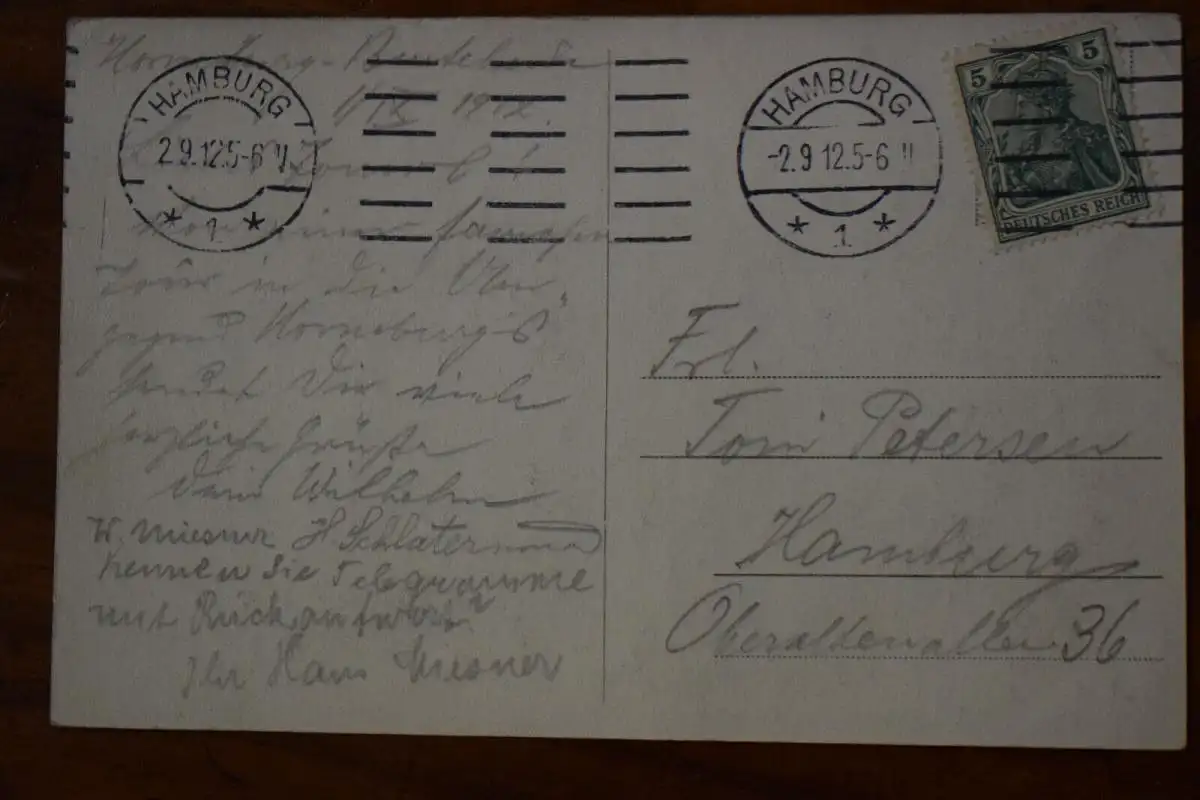 Horneburg-Buxtehude
1/IX 1912.
HAMBURG
2.9.12.5-6 N
* 1 *
HAMBURG
-2.9.12.5-6 N
* 1 *
5 5
DEUTSCHES REICH
Von einer famosen
Tour in die Um
gegend Horneburg's
sendet Dir viele
herzliche Grüße
Dein Wilhelm
W. Miesner H Schlatermund
Kennen Sie Telegramme
mit Rückantwort?
Ihr Hans Miesner
Frl.
Toni Petersen
Hamburg
Oberaltenallee 36